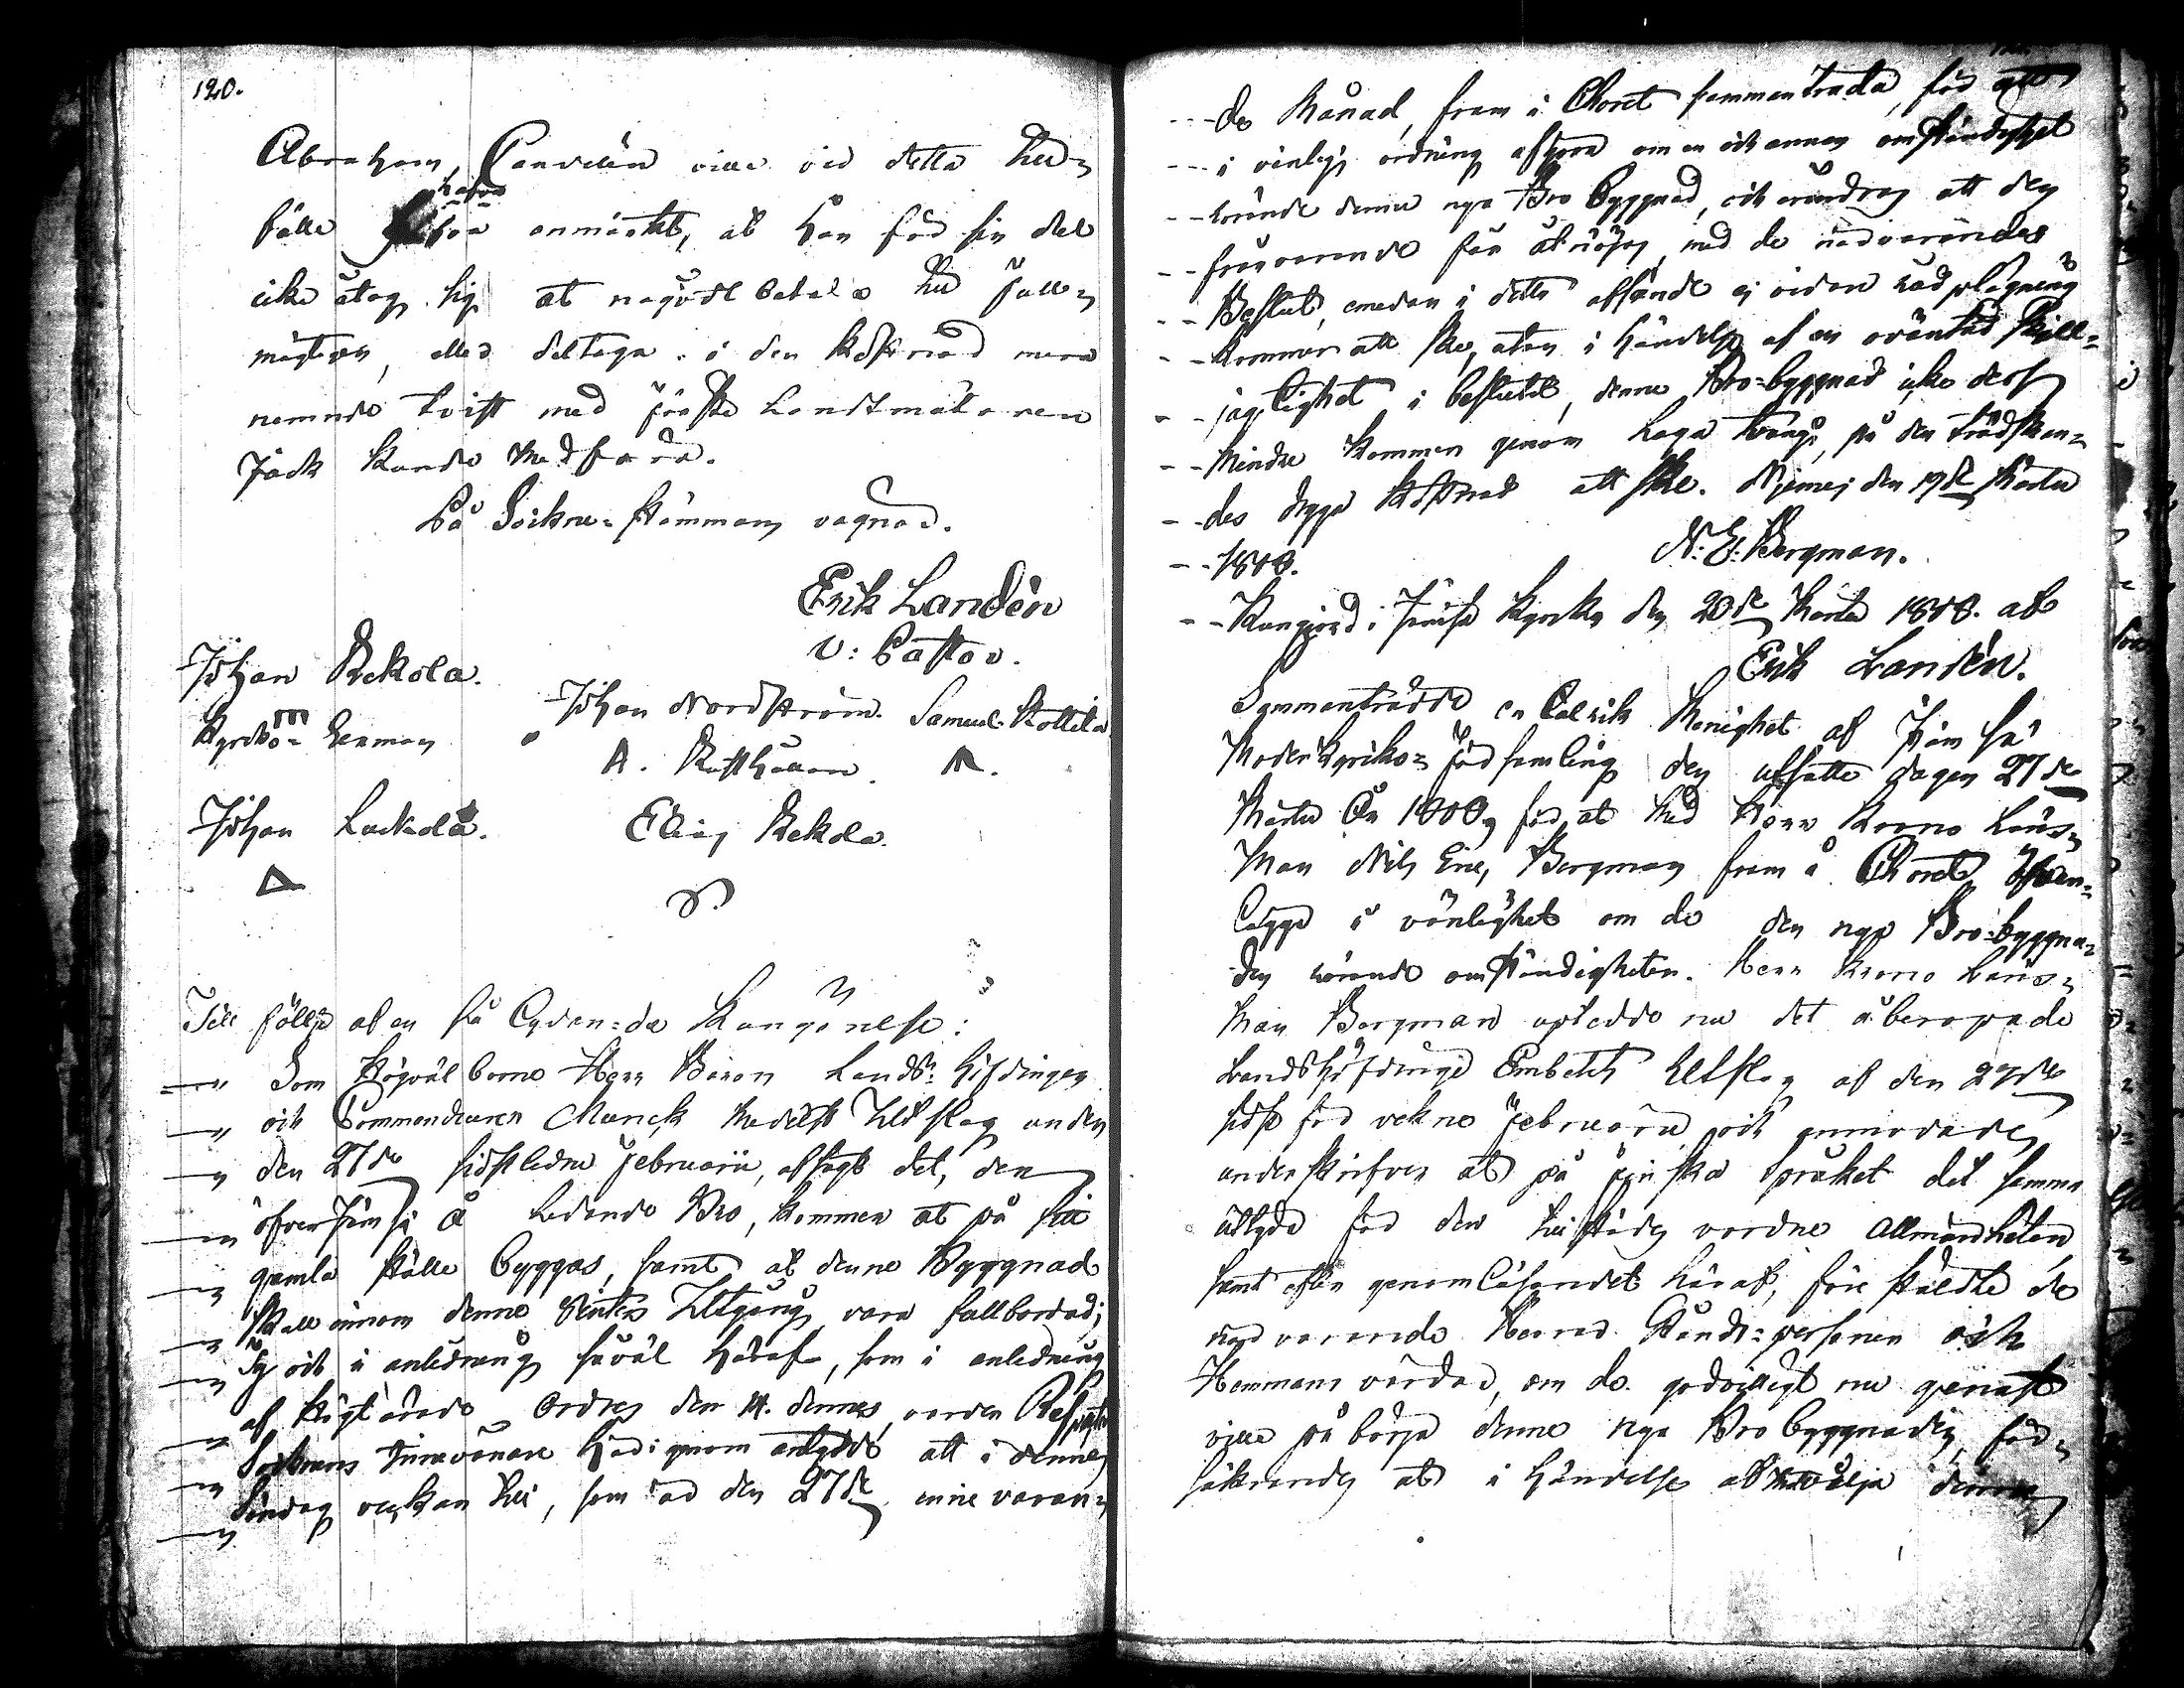 120.
Abraham Candelin ville vid detta till=
fälle hafva anmärkt, at han för sin del
icke åtog sig at någodt betala till full=
mägtigen, eller deltaga i den kostnad mera
nemnde tvist med förste Landtmätaren
Jack kunde medföra.
På Sockne=Stämmans vägnar.
Erik Landén
V: Pastor.
Johan Rekola.
Johan Nordström. Samuel Kottila
Kyrcko= m
A. Kosthåaren.
Johan Luckala.
Elias Rekola.
Till följe af en så lydande Kungörelse:
" Som Högvälborne Herr Baron Lands=höfdingen
" och Commendeuren Munck medelst Utslag under
" den 27de sidstledne Februarii, afsagt det, den
" öfver Jämsä Å ledande Bro, kommer at på sitt
" gamla ställe byggas, samt at denne Byggnad
" skall innom denne Vinters Utgång vara fullbordad;
" Ty och i anledning såväl häraf, som i anledning
" af Högtärade Ordres den 14. dennes, varder
" Socknens Innevånare härigenom anlydde att i dennes
" Söndag veckan till, som är den 27de innevaran=
--de Månad, fram i Choret sammanträda, för att
--i vänlig ordning afgöra om en och annan omständighet
--rörande denne nya Bro byggnad, och erindras att den
--frånvarende får åtnöjas med de närvarandes
--Beslut, emedan i detta afseende ej vidare rådplägning
--kommer att ske, utan i händelse af en oväntad Skill=
--jagtighet i beslutet, denne Bro=byggnad icke dess
--mindre kommer genom Laga tvång, på den
--des dryga kostnad att ske. den 19de Martii
--1808. N: E: Bergman.
--Kungjord i Jämsä Kyrcka den 20de Martii 1808. af
Erik Landén.
Sammanträdde en talrik Menighet af Jämsä
Moderkyrcko=Församling den utsatte dagen 27de
Martii År 1808, för at med Herr Krono Läns=
Man Nils Eric Bergman fram å Choret öfver=
lägga i vänlighet om de den nya Bro=byggna=
den rörande omständigheter. Herr Krono Läns=
Man Bergman upledde nu det åberopade
Landshöfdinge Embetets Utslag af den 27de
sidst förvekne Februarii, och anmodade
underskrifven at på finska Språket det samma
uttyda för den tillstädes vordne Allmänheten
samt efter genomläsandet häraf, före stäldte de
närvarande Herrar Stånds=personer och
Hemmans värdar, om de godvilligt nu genast
ville på börja denne nya Bro byggnaden, för=
säkrandes at i händelse af denne